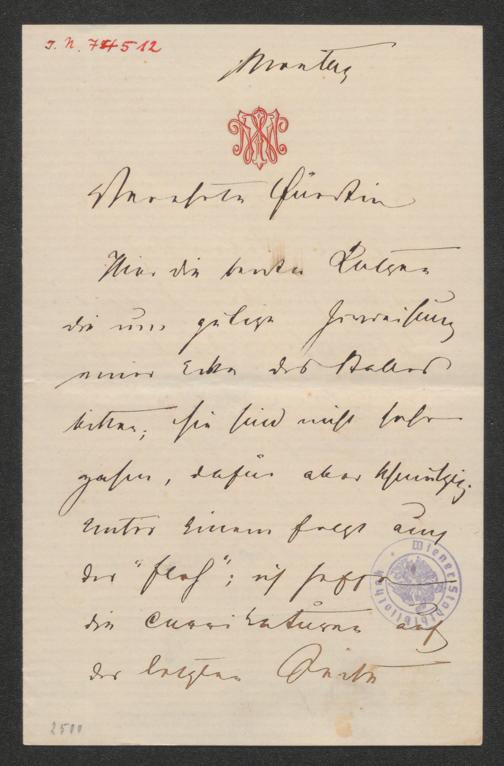 J. N. 74512
Montag
Verehrte Fürstin
Hier die beiden
die um gütige Zuweisung
einer Ecke des Stalles
bitten; sie sind nicht sehr
, dafür aber schmutzig.
Unter Einem folgt auch
der "Floh"; ich hoffe
die Carrikaturen auf
der letzten Seite
Wiener Stadtbibliothek
2500